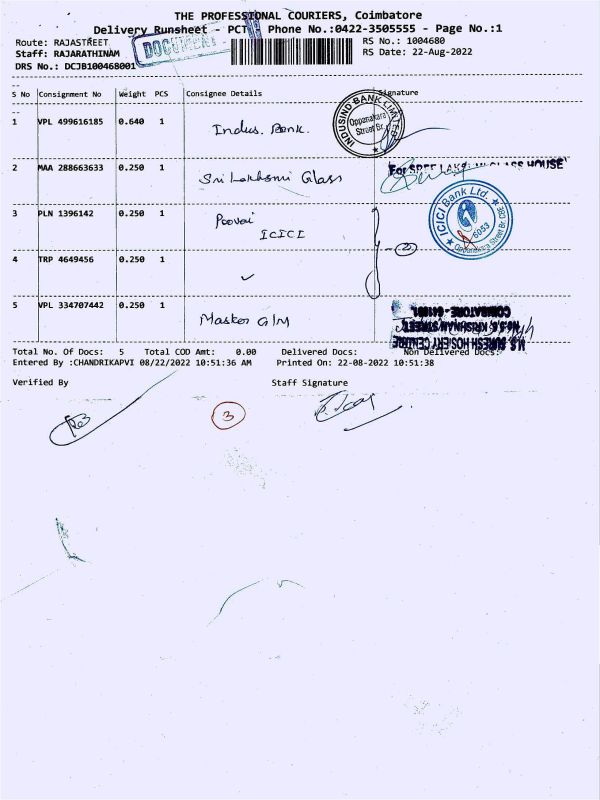 THE PROFESSIONAL COURIERS, Coimbatore
Delivery Runsheet - PCT Phone No.:0422-3505555 - Page No.:1
DOCUMENT
Route: RAJASTREET RS No.: 1004680
Staff: RAJARATHINAM RS Date: 22-Aug-2022
DRS No.: DCJB100468001
S No Consignment No Weight PCS Consignee Details Signature
1 VPL 499616185 0.640 1 Indus. Bank.
INDUSIND BANK LIMITED
Oppanakara
Street Br.
2 MAA 288663633 0.250 1 Sri Lakhsmi Glass
For SREE LAKSHMI GLASS HOUSE
3 PLN 1396142 0.250 1 Poovai
ICICI
ICICI Bank Ltd.
6053
Oppanakara Street Br. CBE
4 TRP 4649456 0.250 1
5 VPL 334707442 0.250 1 Master GIM
M.S. SURESH HOSIERY CENTRE
KRISHNAN STREET,
COIMBATORE - 641001.
Total No. Of Docs: 5 Total COD Amt: 0.00 Delivered Docs: Non Delivered Docs:
Entered By :CHANDRIKAPVI 08/22/2022 10:51:36 AM Printed On: 22-08-2022 10:51:38
Verified By Staff Signature
3